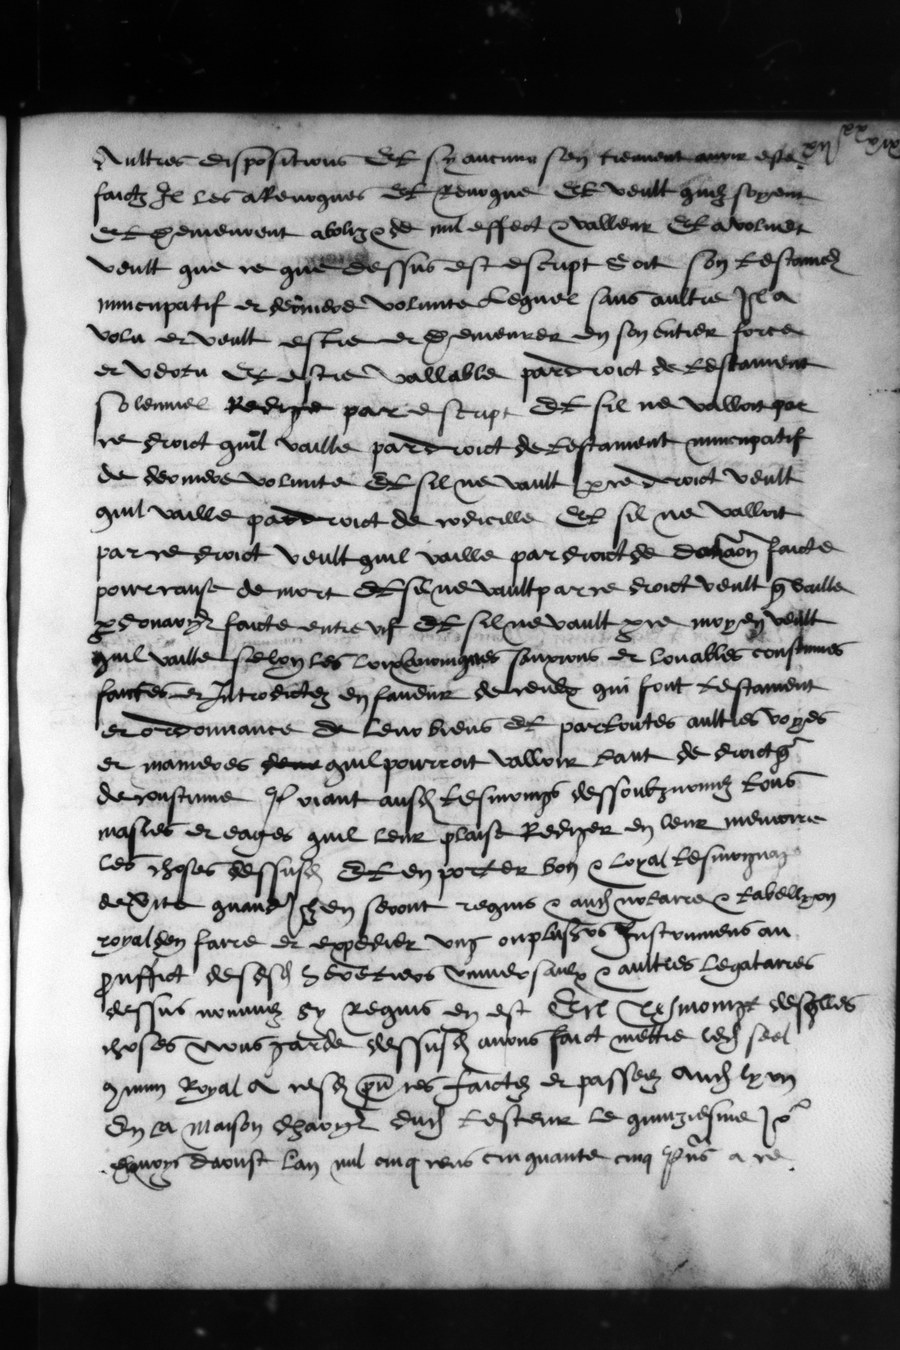 Aultres dispositions Et sy aucuns sen treuvent avoir esté
faictz Il les a revoques Et Revoque Et veult quilz soyent
et demeurent abolyz & de nul effect & valleur Et a volu et
veult que ce que dessus est escript Soit son testament
nuncupatif et derniere volunte Lequel sans aultre Il a
volu et veult estre et demeurer en son entier force
et vertu Et estre vallable par droict de testament
Solennel Redige par escript Et sil ne valloit par
ce droict quil vaille par droict de testament nuncupatif
de derniere volunte Et sil ne vault p ce droict veult
quil vaille par droict de codicille Et sil ne valloit
par ce droict veult quil vaille par droict de donaon faicte
pour cause de mort Et sil ne vault par ce droict veult q vaille
p donaon faicte entre vif Et sil ne vault p ce moyen veult
quil vaille selon les loix canoniques sanxions et louables coustumes
faictes et Introduictez en faveur de ceulx qui font testament
et ordonnance de leur biens Et par toutes aultres voyes
et manieres quil pourroit valloir tant de droict q
de coustume Priant ausd tesmoings dessoubz nommez tous
masles et eages quil leur plaise Rediger en leur memoire
les choses dessusd Et en porter bon & loyal tesmoignage
de verite quand Ilz en seront requis & aud notaire & tabellyon
royal den faire et expedier ung ou plusrs Instrumens au
prouffict de sesd heretiers universaulx & aultres legataires
dessus nommez sy Requis en est En Tesmoing desqlles
choses Nous garde dessusd avons faict mettre led seel
commun Royal a cesd pn tes faictez et passeez Aud lyon
En la maison dhaon dud testeur le quinziesme Jor
du moys daoust lan mil cinq cens cinquante cinq pns a ce